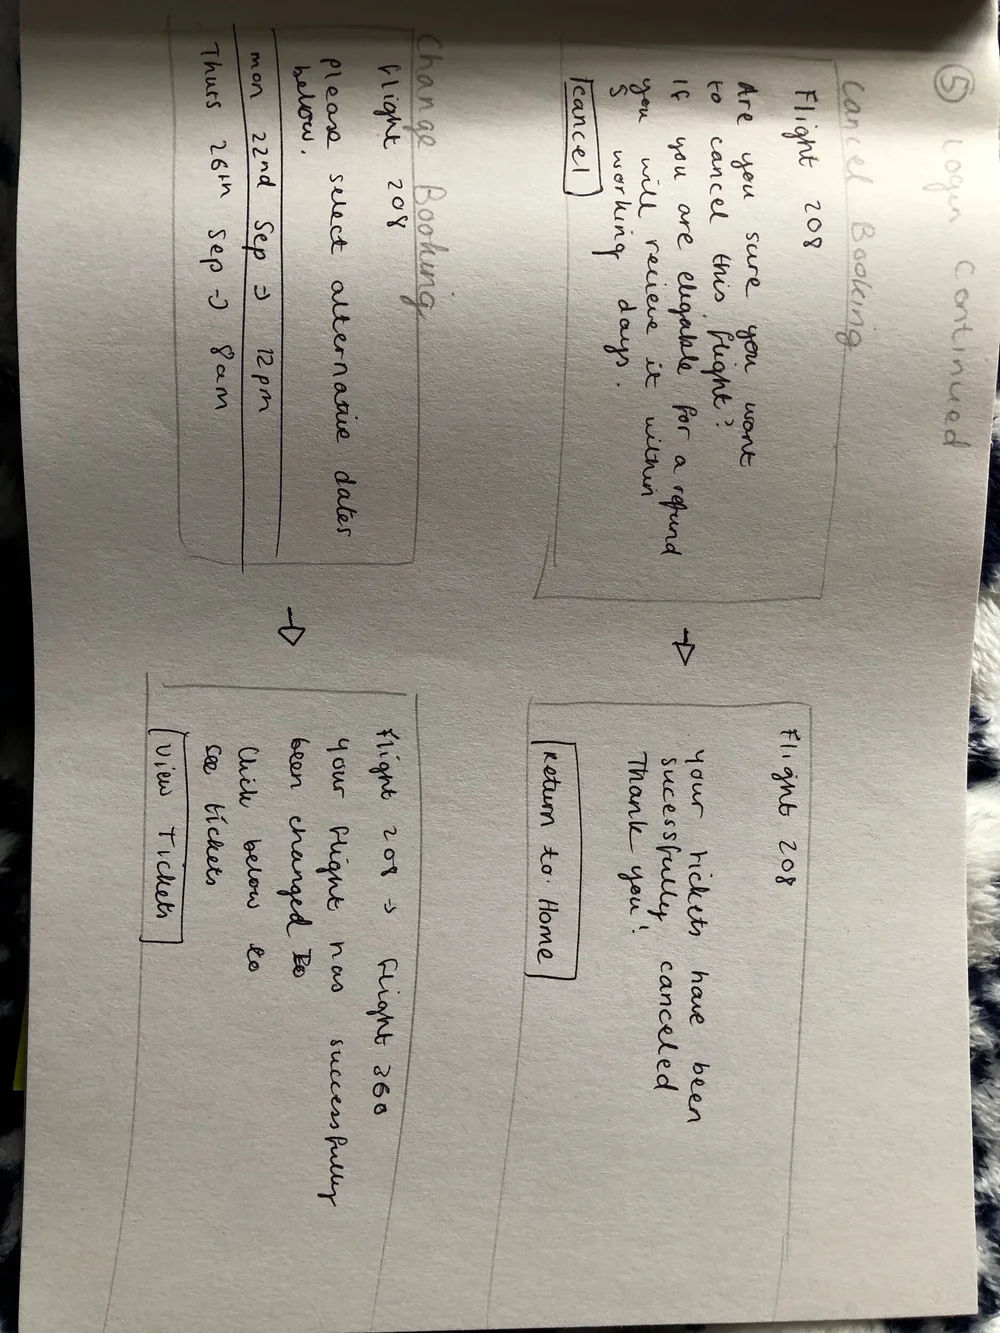 5 Login Continued
Cancel Booking
Flight 208
Are you sure you want
to cancel this flight?
If you are eligable for a refund
you will recieve it within
5 working days.
cancel
Flight 208
Your tickets have been
sucessfully canceled
Thank you!
Return to Home
Change Booking
Flight 208
Please select alternative dates
below.
Mon 22nd Sep → 12pm
Thurs 26th Sep → 8am
Flight 208 → Flight 360
Your flight has successfully
been changed
Click below to
see tickets
View Tickets